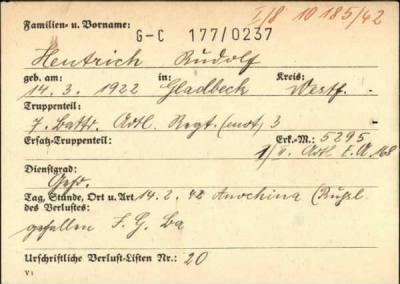 Familien- u. Vorname:
I/8 10 185/42
G-C 177/0237
Hentrich Rudolf
geb. am: in: Kreis:
14. 3. 1922 Gladbeck Westf.
Truppenteil:
7. Battr. Artl. Regt. (mot) 3
Ersatz-Truppenteil: Erk.-M.: 5295
Artl. E. A. 168
Dienstgrad:
Gefr.
Tag, Stunde, Ort u. Art 14. 2. 42 Anochina
des Verlustes:
gefallen F. G. Ba
Urschriftliche Verlust-Listen Nr.: 20
V1